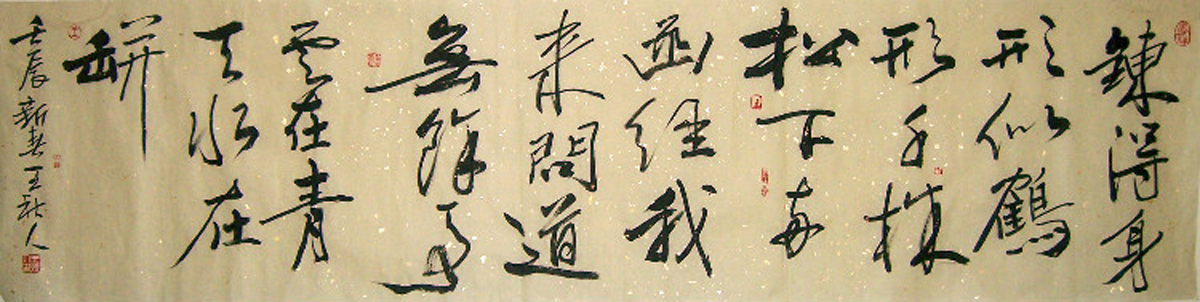 鍊得身
形似鶴
形千株
松下兩
函經我
来問道
無餘事
雲在青
天水在
缾
壬辰新春王人